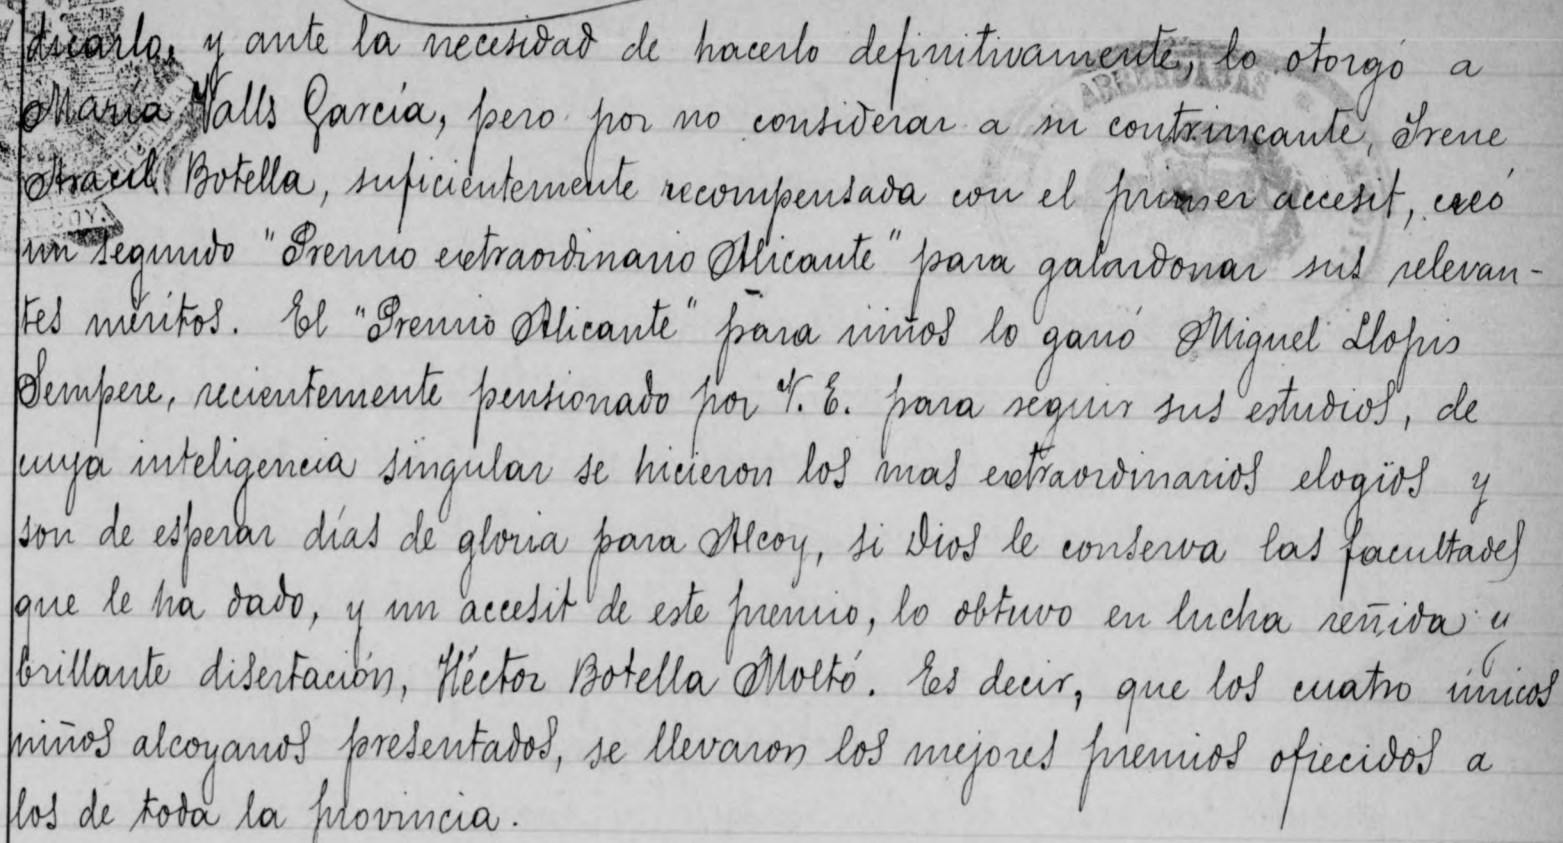 dicarlo, y ante la necesidad de hacerlo definitivamente, lo otorgó a
María Valls García, pero por no considerar a su contrincante, Irene
Aracil Botella, suficientemente recompensada con el primer accesit, creó
un segundo "Premio extraordinario Alicante" para galardonar sus relevan-
tes méritos. El "Premio Alicante" para niños lo ganó Miguel Llopis
Sempere, recientemente pensionado por V. E. para seguir sus estudios, de
cuya inteligencia singular se hicieron los mas extraordinarios elogios y
son de esperar días de gloria para Alcoy, si Dios le conserva las facultades
que le ha dado, y un accesit de este premio, lo obtuvo en lucha reñida y
brillante disertación, Héctor Botella Moltó. Es decir, que los cuatro únicos
niños alcoyanos presentados, se llevaron los mejores premios ofrecidos a
los de toda la provincia.